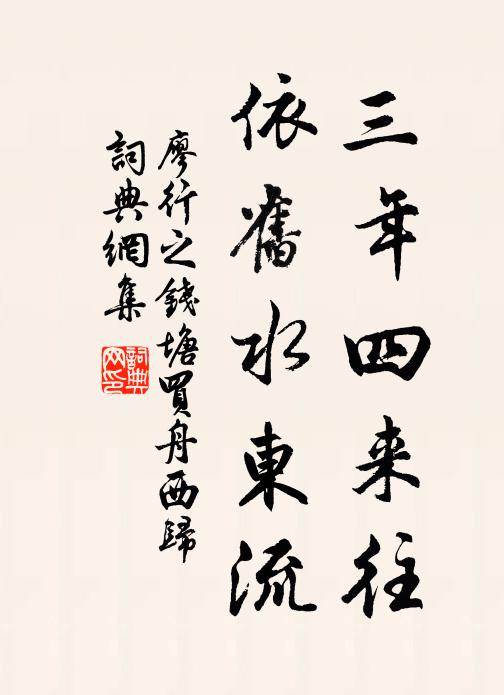 三年四来往
依舊水東流
廖行之錢塘買舟西歸
詞典網集
詞典网印